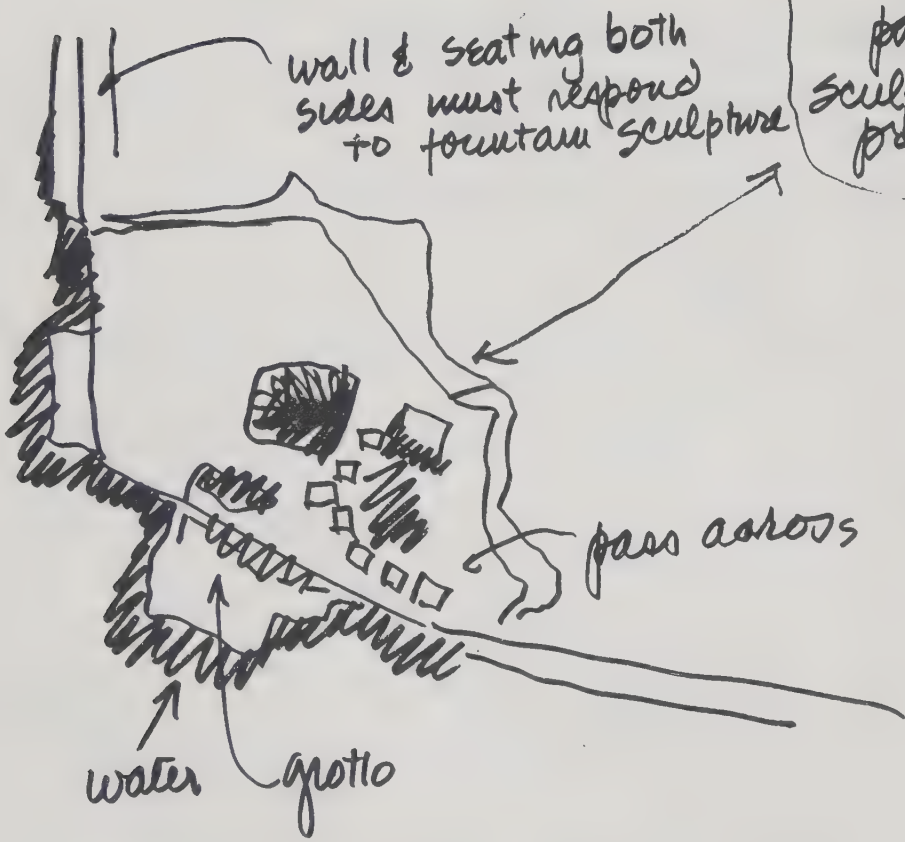 wall & seating both
sides must respond
to fountain sculpture
pass across
water
grotto